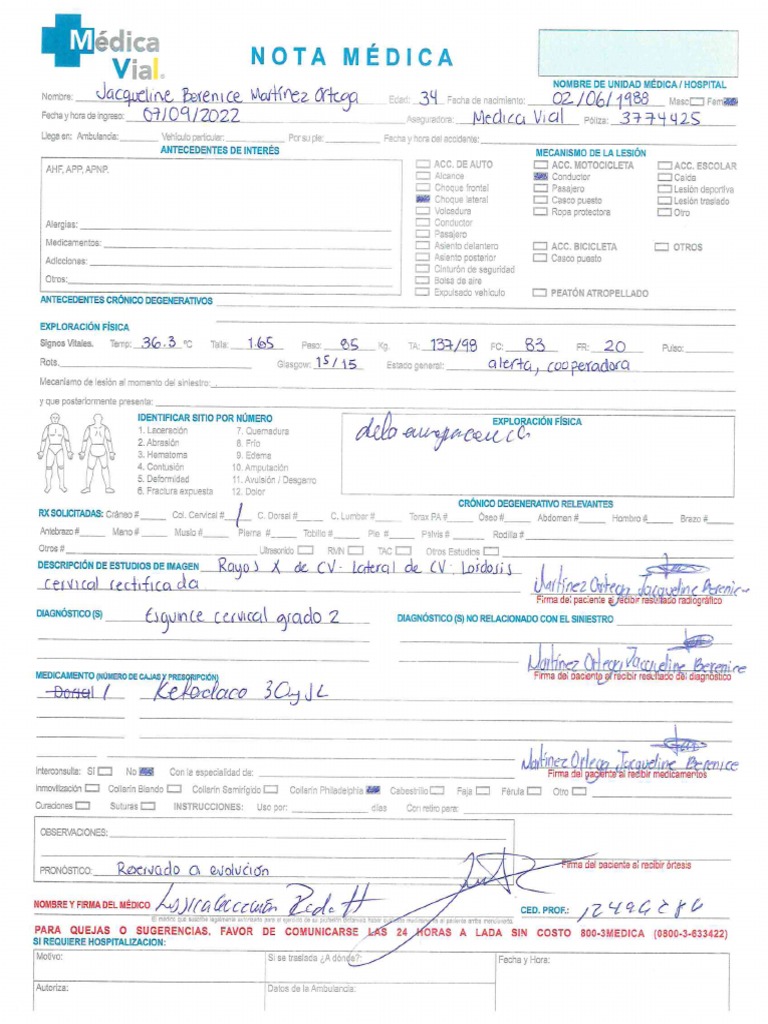 Médica Vial.
NOTA MÉDICA
NOMBRE DE UNIDAD MÉDICA / HOSPITAL
Nombre: Jacqueline Berenice Martínez Ortega Edad: 34 Fecha de nacimiento: 02/06/1988 Masc Fem
Fecha y hora de ingreso: 07/09/2022 Aseguradora: Medica Vial Póliza: 3774425
Llega en: Ambulancia: Vehículo particular: Por su pie: Fecha y hora del accidente:
ANTECEDENTES DE INTERÉS
MECANISMO DE LA LESIÓN
AHF, APP, APNP.
ACC. DE AUTO ACC. MOTOCICLETA ACC. ESCOLAR
Alcance Conductor Caída
Choque frontal Pasajero Lesión deportiva
Choque lateral Casco puesto Lesión traslado
Volcadura Ropa protectora Otro
Alergias: Conductor
Pasajero
Medicamentos: Asiento delantero ACC. BICICLETA OTROS
Adicciones: Asiento posterior Casco puesto
Cinturón de seguridad
Otros: Bolsa de aire
Expulsado vehículo PEATÓN ATROPELLADO
ANTECEDENTES CRÓNICO DEGENERATIVOS
EXPLORACIÓN FÍSICA
Signos Vitales. Temp: 36.3 ºC Talla: 1.65 Peso: 85 Kg. TA: 137/98 FC: 83 FR: 20 Pulso:
Rots. Glasgow: 15/15 Estado general: alerta, cooperadora
Mecanismo de lesión al momento del siniestro:
y que posteriormente presenta:
IDENTIFICAR SITIO POR NÚMERO
EXPLORACIÓN FÍSICA
1. Laceración 7. Quemadura
2. Abrasión 8. Frío
3. Hematoma 9. Edema
4. Contusión 10. Amputación
5. Deformidad 11. Avulsión / Desgarro
6. Fractura expuesta 12. Dolor
CRÓNICO DEGENERATIVO RELEVANTES
RX SOLICITADAS: Cráneo # Col. Cervical # 1 C. Dorsal # C. Lumbar # Torax PA # Óseo # Abdomen # Hombro # Brazo #
Antebrazo # Mano # Muslo # Pierna # Tobillo # Pie # Pelvis # Rodilla #
Otros # Ultrasonido RMN TAC Otros Estudios
DESCRIPCIÓN DE ESTUDIOS DE IMAGEN Rayos X de CV- Lateral de CV- Lordosis
cervical rectificada
Martínez Ortega Jacqueline Berenice
Firma del paciente al recibir resultado radiográfico
DIAGNÓSTICO (S) Esguince cervical grado 2
DIAGNÓSTICO (S) NO RELACIONADO CON EL SINIESTRO
Martínez Ortega Jacqueline Berenice
Firma del paciente al recibir resultado del diagnóstico
MEDICAMENTO (NÚMERO DE CAJAS Y PRESCRIPCIÓN)
1 Ketorolaco 30
Martínez Ortega Jacqueline Berenice
Firma del paciente al recibir medicamentos
Interconsulta: SI No Con la especialidad de:
Inmovilización Collarín Blando Collarín Semirígido Collarín Philadelphia Cabestrillo Faja Férula Otro
Curaciones Suturas INSTRUCCIONES: Uso por: días Con retiro para:
OBSERVACIONES:
Firma del paciente al recibir órtesis
PRONÓSTICO: Reservado a evolución
NOMBRE Y FIRMA DEL MÉDICO CED. PROF.:
PARA QUEJAS O SUGERENCIAS, FAVOR DE COMUNICARSE LAS 24 HORAS A LADA SIN COSTO 800-3MEDICA (0800-3-633422)
SI REQUIERE HOSPITALIZACION:
Motivo: Si se traslada ¿A dónde?: Fecha y Hora:
Autoriza: Datos de la Ambulancia: